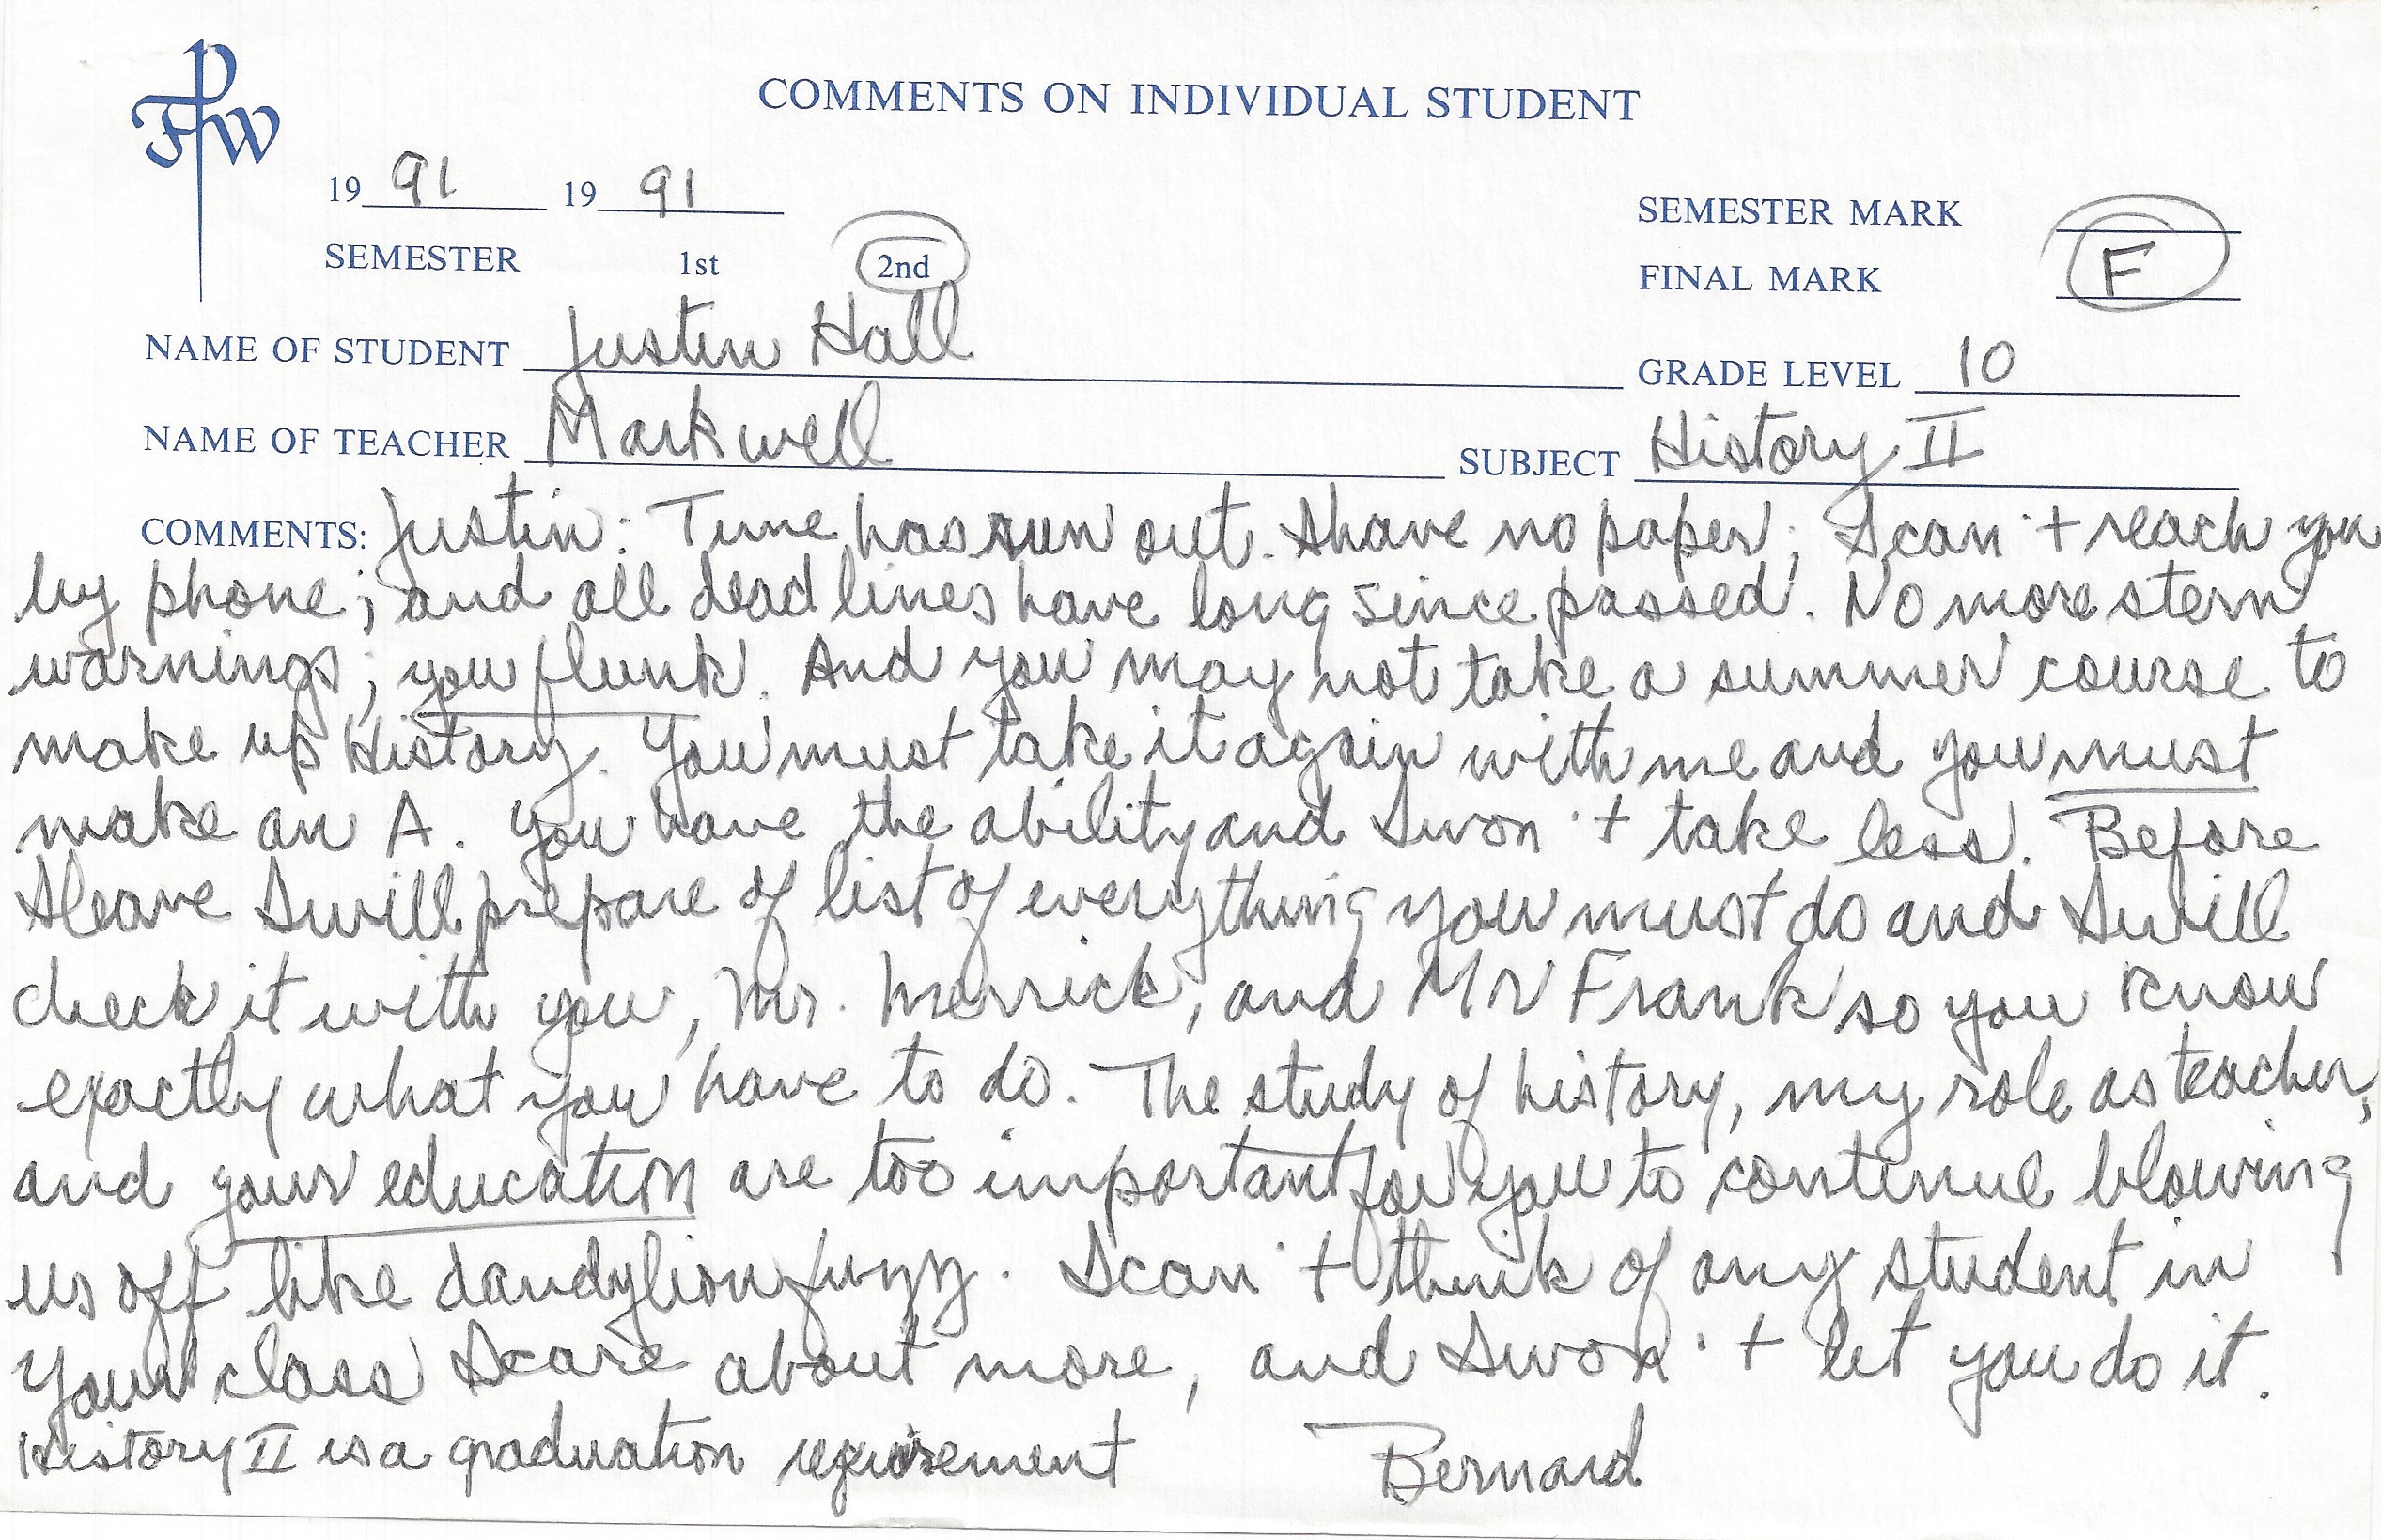 FPW
COMMENTS ON INDIVIDUAL STUDENT
19 91 19 91
SEMESTER MARK
SEMESTER 1st 2nd
FINAL MARK F
NAME OF STUDENT Justin Hall
GRADE LEVEL 10
NAME OF TEACHER Markwell SUBJECT History II
COMMENTS: Justin: Time has run out. I have no paper; I can't reach you
by phone; and all deadlines have long since passed. No more stern
warnings; you flunk. And you may not take a summer course to
make up History. You must take it again with me and you must
make an A. You have the ability and I won't take less. Before
I leave I will prepare of list of everything you must do and I will
check it with you, Mr. Merrick, and Mr Frank so you know
exactly what you have to do. The study of history, my role as teacher,
and your education are too important for you to continue blowing
us off like dandylion fuzz. I can't think of any student in
your class I care about more, and I won't let you do it.
History II is a graduation requirement Bernard